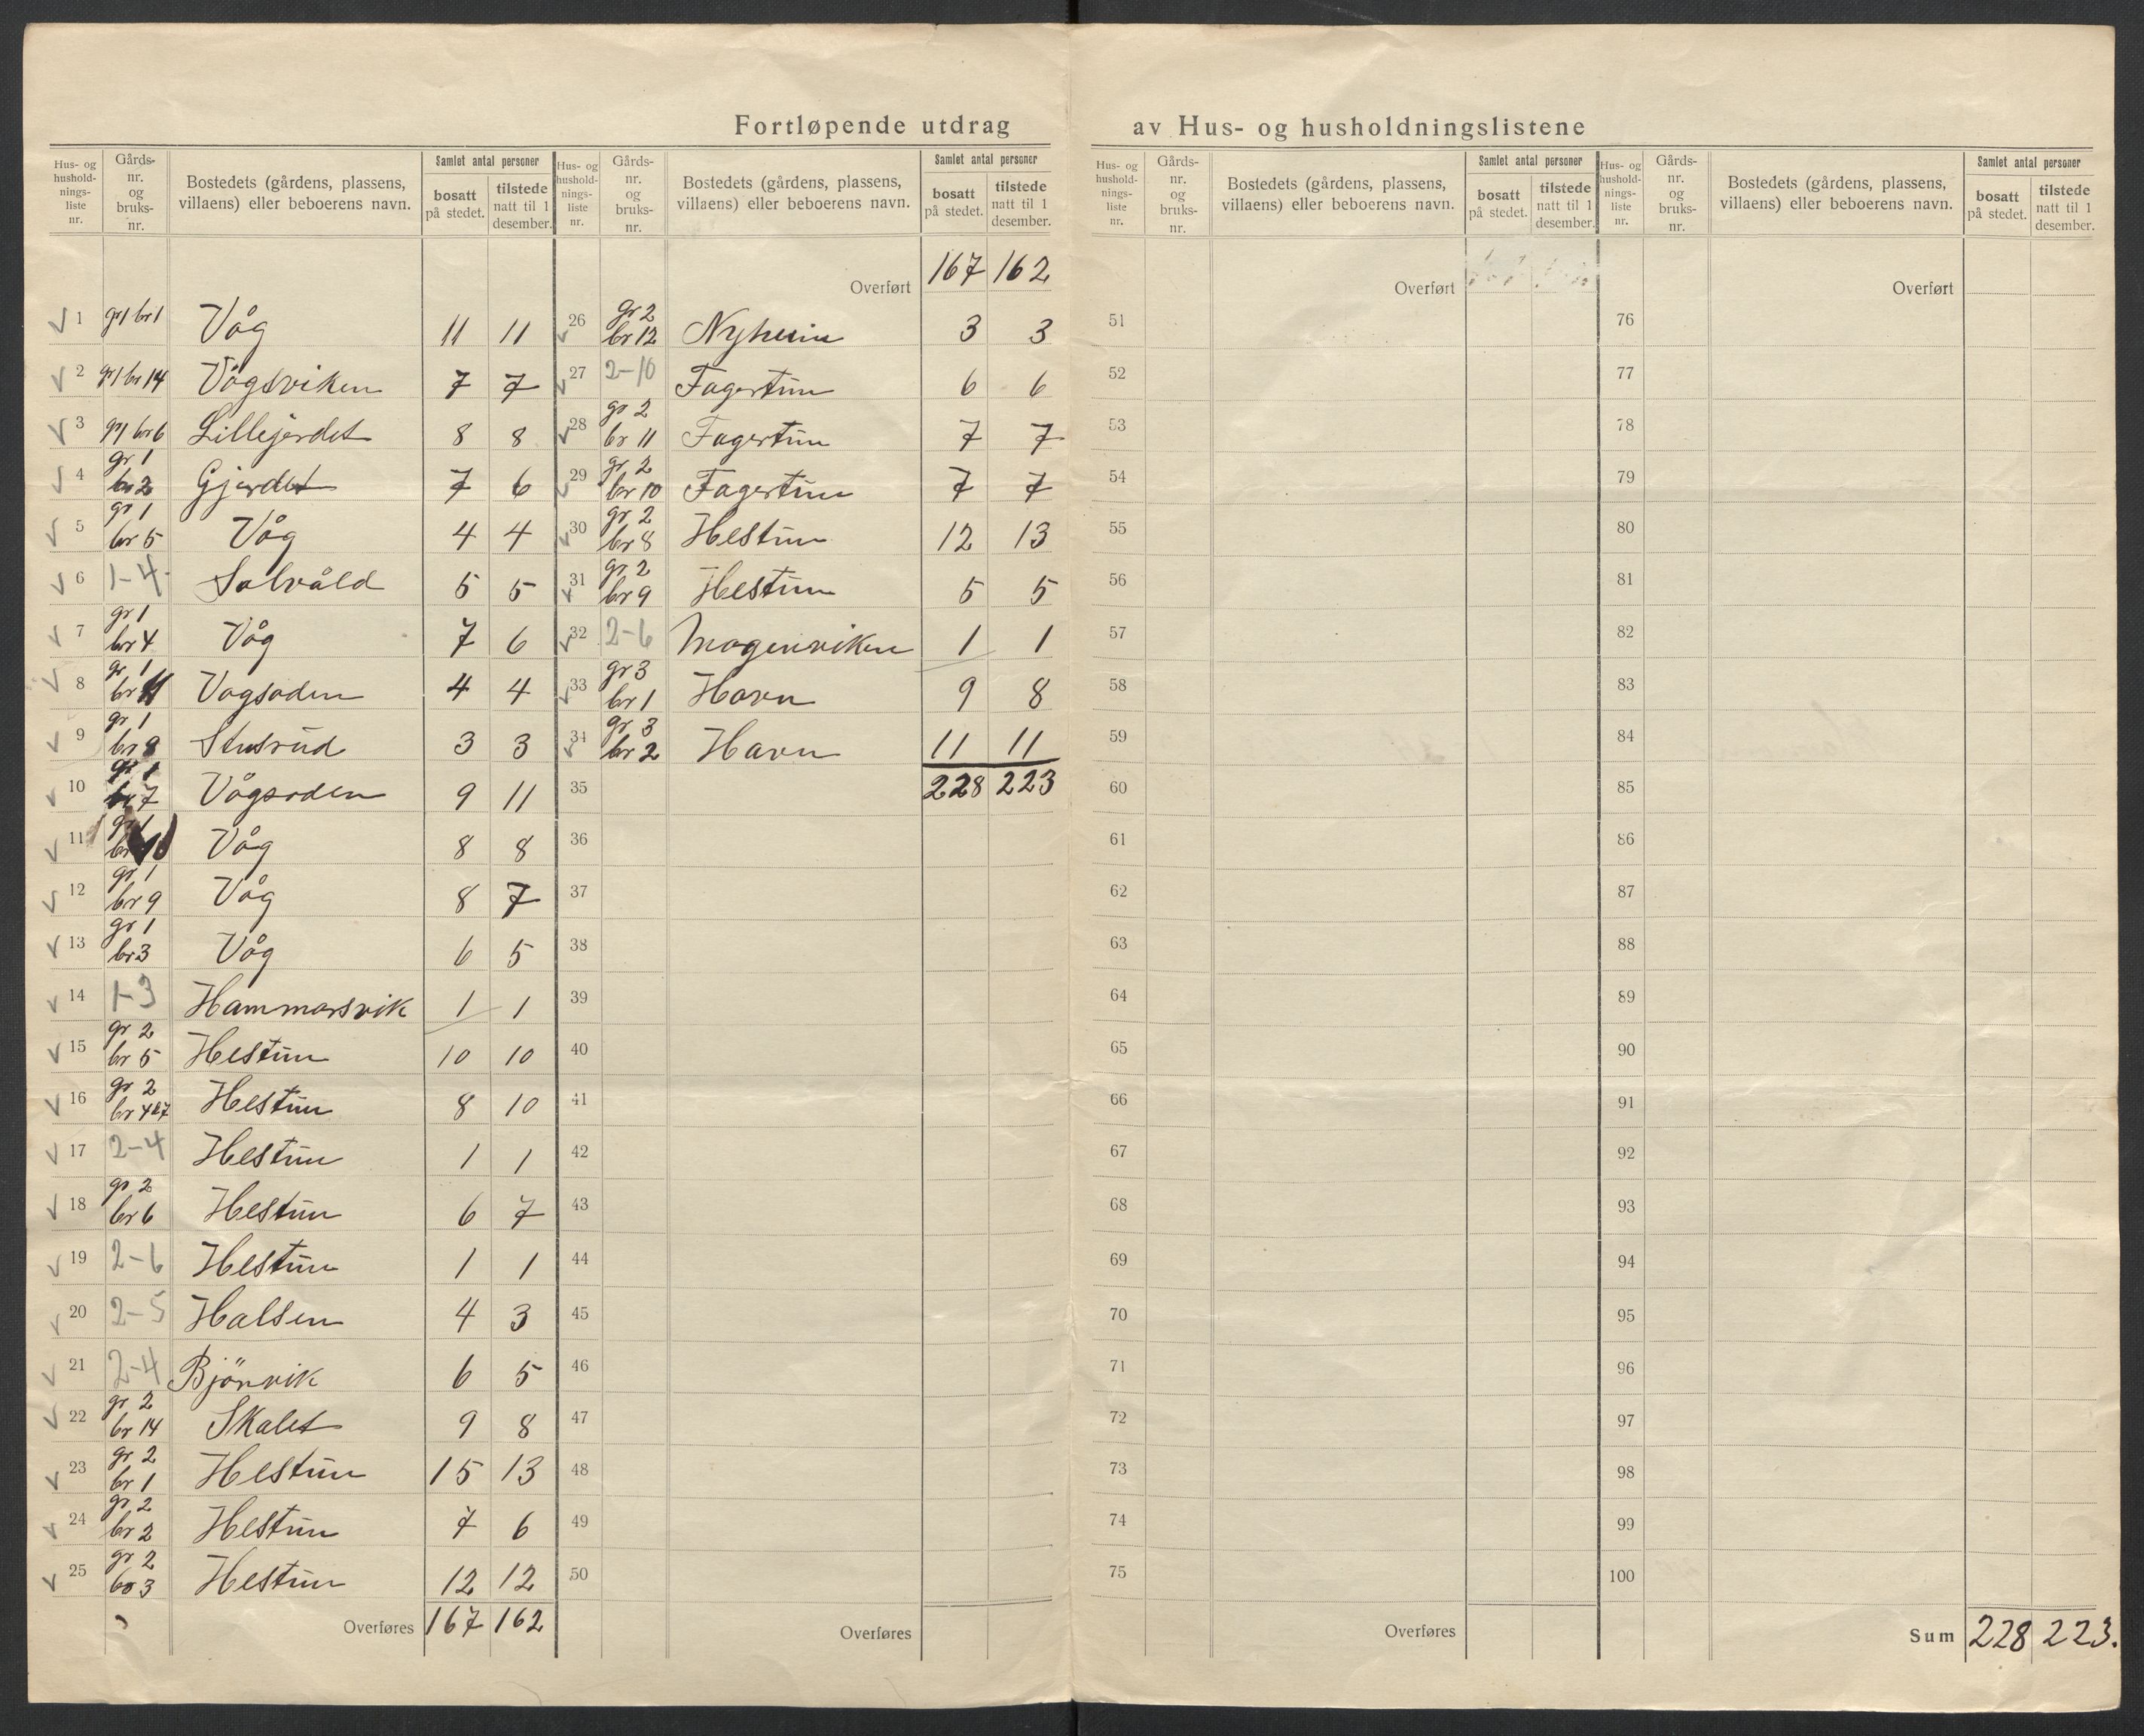 Fortløpende utdrag av Hus- og husholdningslistene
Hus- og husholdnings-liste nr. Gårds-nr. og bruks-nr. Bostedets (gårdens, plassens, villaens) eller beboerens navn. Samlet antal personer bosatt på stedet. tilstede natt til 1 desember.
1 gr1 br1 Våg 11 11
2 gr1 br14 Vågsviken 7 7
3 gr1 br6 Lillejerdet 8 8
4 gr 1 br 2 Gjerdet 7 6
5 gr 1 br 5 Våg 4 4
6 1-4 Solvåld 5 5
7 gr 1 br 4 Våg 7 6
8 gr 1 br 11 Vagsoden 4 4
9 gr 1 br 8 Stusrud 3 3
10 gr 1 br 7 Vågsoden 9 11
11 gr 1 br 10 Våg 8 8
12 gr 1 br 9 Våg 8 7
13 gr 1 br 3 Våg 6 5
14 1-3 Hammarsvik 1 1
15 gr 2 br 5 Hestun 10 10
16 gr 2 br 4&7 Hestun 8 10
17 2-4 Hestun 1 1
18 gr 2 br 6 Hestun 6 7
19 2-6 Hestun 1 1
20 2-5 Halsen 4 3
21 2-4 Bjönvik 6 5
22 gr 2 br 14 Skalet 9 8
23 gr 2 br 1 Hestun 15 13
24 gr 2 br 2 Hestun 7 6
25 gr 2 br 3 Hestun 12 12
Overføres 167 162
Hus- og husholdnings-liste nr. Gårds-nr. og bruks-nr. Bostedets (gårdens, plassens, villaens) eller beboerens navn. Samlet antal personer bosatt på stedet. tilstede natt til 1 desember.
Overført 167 162
26 gr 2 br 12 Nyheim 3 3
27 2-10 Fagertun 6 6
28 gr 2 br 11 Fagertun 7 7
29 gr 2 br 10 Fagertun 7 7
30 gr 2 br 8 Hestun 12 13
31 gr 2 br 9 Hestun 5 5
32 2-6 Magenviken 1 1
33 gr 3 br 1 Havn 9 8
34 gr 3 br 2 Havn 11 11
35 228 223
36
37
38
39
40
41
42
43
44
45
46
47
48
49
50
Overføres
Hus- og husholdnings-liste nr. Gårds-nr. og bruks-nr. Bostedets (gårdens, plassens, villaens) eller beboerens navn. Samlet antal personer bosatt på stedet. tilstede natt til 1 desember.
Overført
51
52
53
54
55
56
57
58
59
60
61
62
63
64
65
66
67
68
69
70
71
72
73
74
75
Overføres
Hus- og husholdnings-liste nr. Gårds-nr. og bruks-nr. Bostedets (gårdens, plassens, villaens) eller beboerens navn. Samlet antal personer bosatt på stedet. tilstede natt til 1 desember.
Overført
76
77
78
79
80
81
82
83
84
85
86
87
88
89
90
91
92
93
94
95
96
97
98
99
100
Sum 228 223.